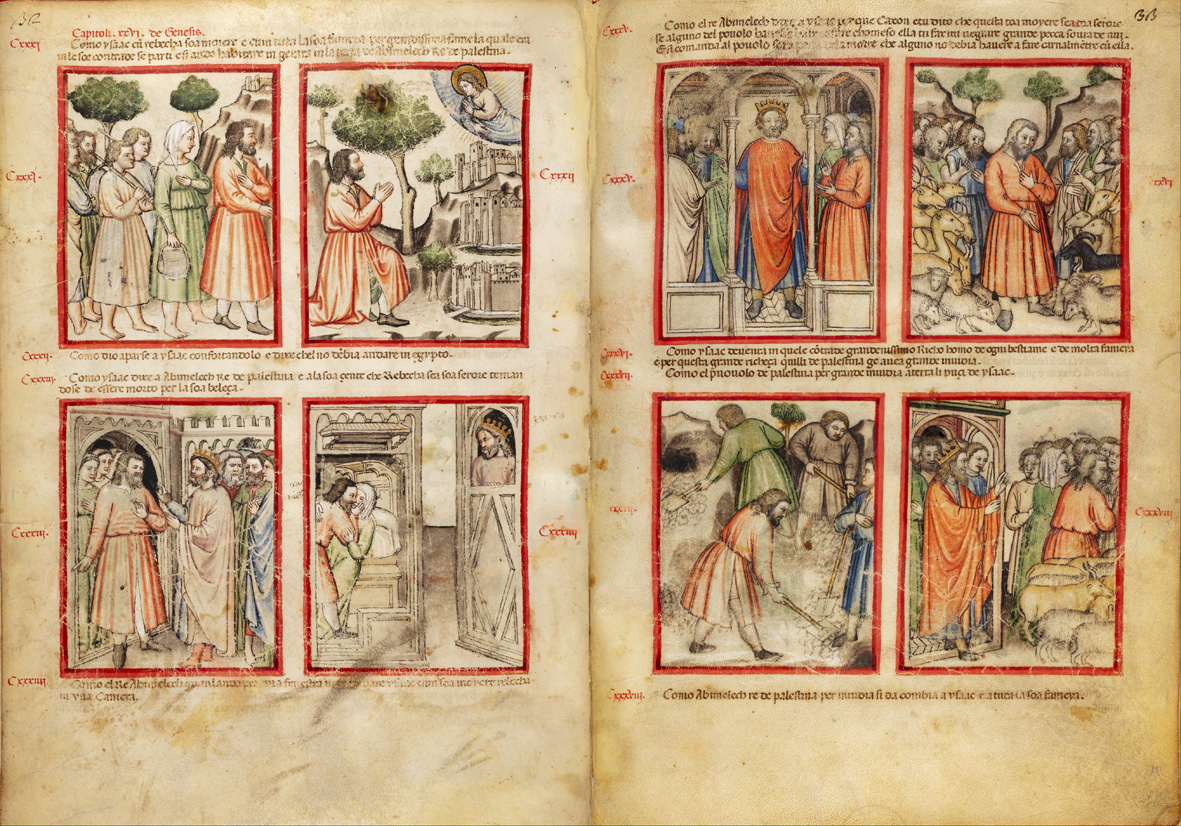 132
Capitolı. xxvi. de Genesis.
Cxxxi
Como ysaac cū rebecha soa moiere e cum tuta la soa fameia per grandissima fame la quale era
in le soe contrade se parti e si ando habitare in geraris in la terra de Abimelech Re de palestina.
Cxxxi.
Cxxxii
Cxxxii.
Como dio aparse a ysaac confortandolo e dixe chel nō debia andare in egypto.
Cxxxiii.
Como ysaac dixe a Abimelech Re de palestina e a la soa gente che Rebecha sea soa serore teman
dose de essere morto per la soa beleça.
Cxxxiii.
Cxxxiiii
Cxxxiiii
Como el Re Abimelech guardando per una fenestra ysaac cum soa moiere rebecha
in la Camera.
133
Cxxxv.
Como el re Abimelech dixe a ysaac per que caxon etu dito che questa toa moyere sea toa serore
se alguno del pouolo
ella tu fasiui uegnire grande pecca soura de nui.
Et si comanda al pouolo
che alguno no debia hauere a fare carnalmētre cū ella.
Cxxxv.
Cxxxvi
Cxxxvi.
Como ysaac deuenta in quele cōtrade grandenissimo Richo homo de ogni bestiame e de molta fameya
e per questa grande richeça quilli de palestina ge auea grande inuidia.
Cxxxvii
Como el puouolo de palestina per grande inuidia aterra li puci de ysaac.
Cxxxviii
Cxxxviii.
Como Abimelech re de palestina per inuidia si da combia a ysaac e a tuta la soa fameya.